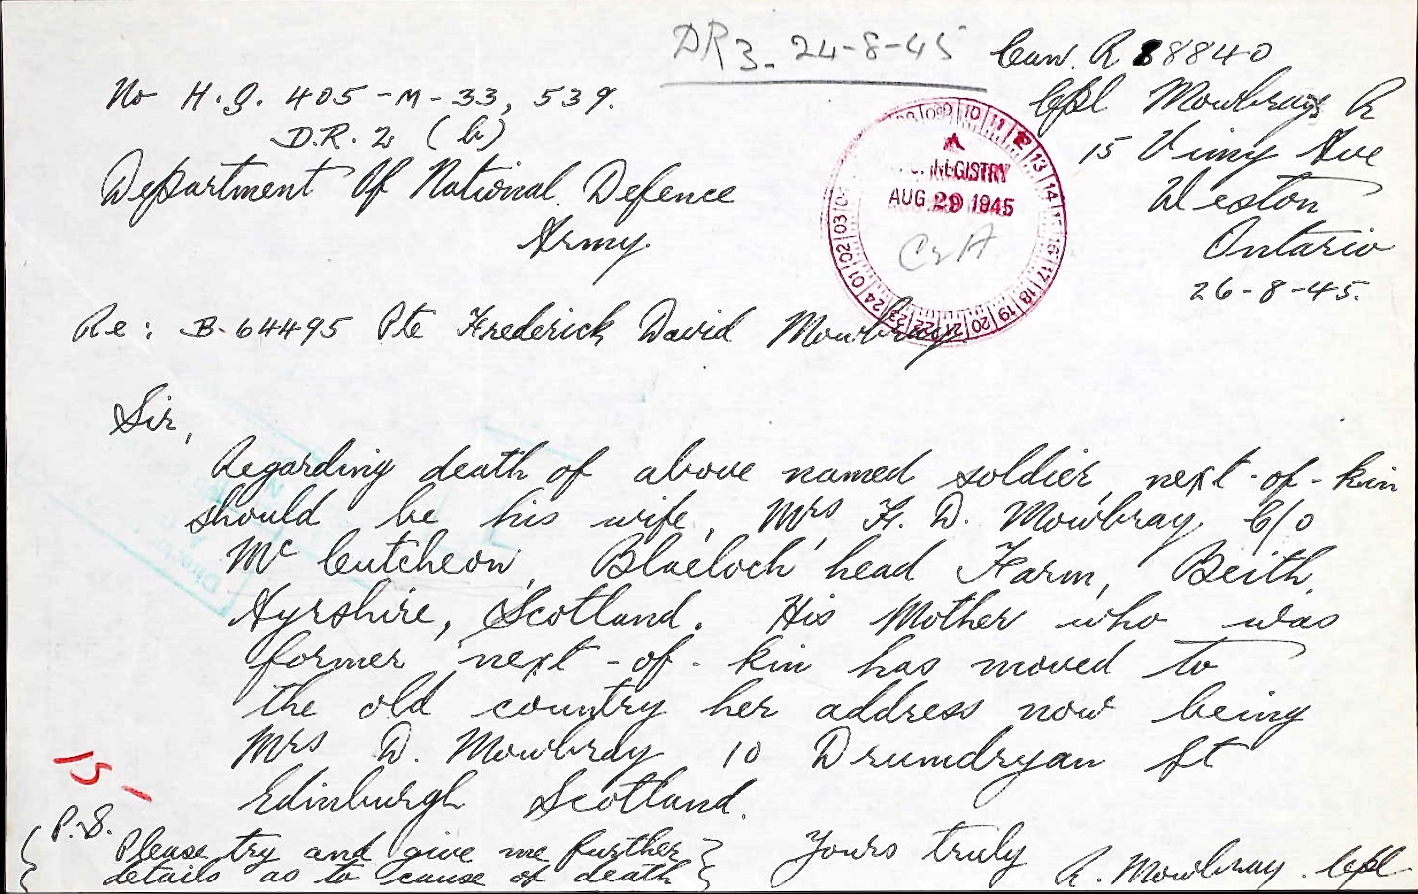 DR3. 24-8-45
Can. R 88840
No H.Q. 405-M-33, 539.
Cpl Mowbray R
D.R. 2 (b)
15 Vimy Ave
Department Of National Defence
Weston
Army.
Ontario
26-8-45.
REGISTRY
AUG 29 1945
Re: B-64495 Pte Frederick David Mowbray
Sir,
Regarding death of above named soldier, next-of-kin
should be his wife, Mrs F. D. Mowbray, C/O
Mc Cutcheon, Blaeloch head Farm, Beith,
Ayrshire, Scotland. His Mother who was
former next-of-kin has moved to
the old country her address now being
Mrs D. Mowbray 10 Drumdryan St
Edinburgh Scotland.
15-
P.S.
Please try and give me further
details as to cause of death
Yours truly
R. Mowbray. Cpl